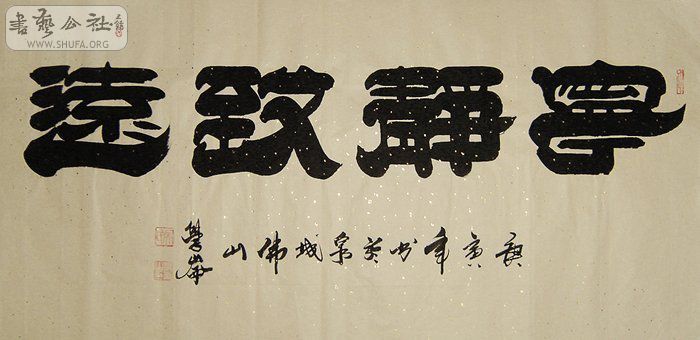 書藝公社
WWW.SHUFA.ORG
寧靜致遠
庚寅年書於泉城佛山